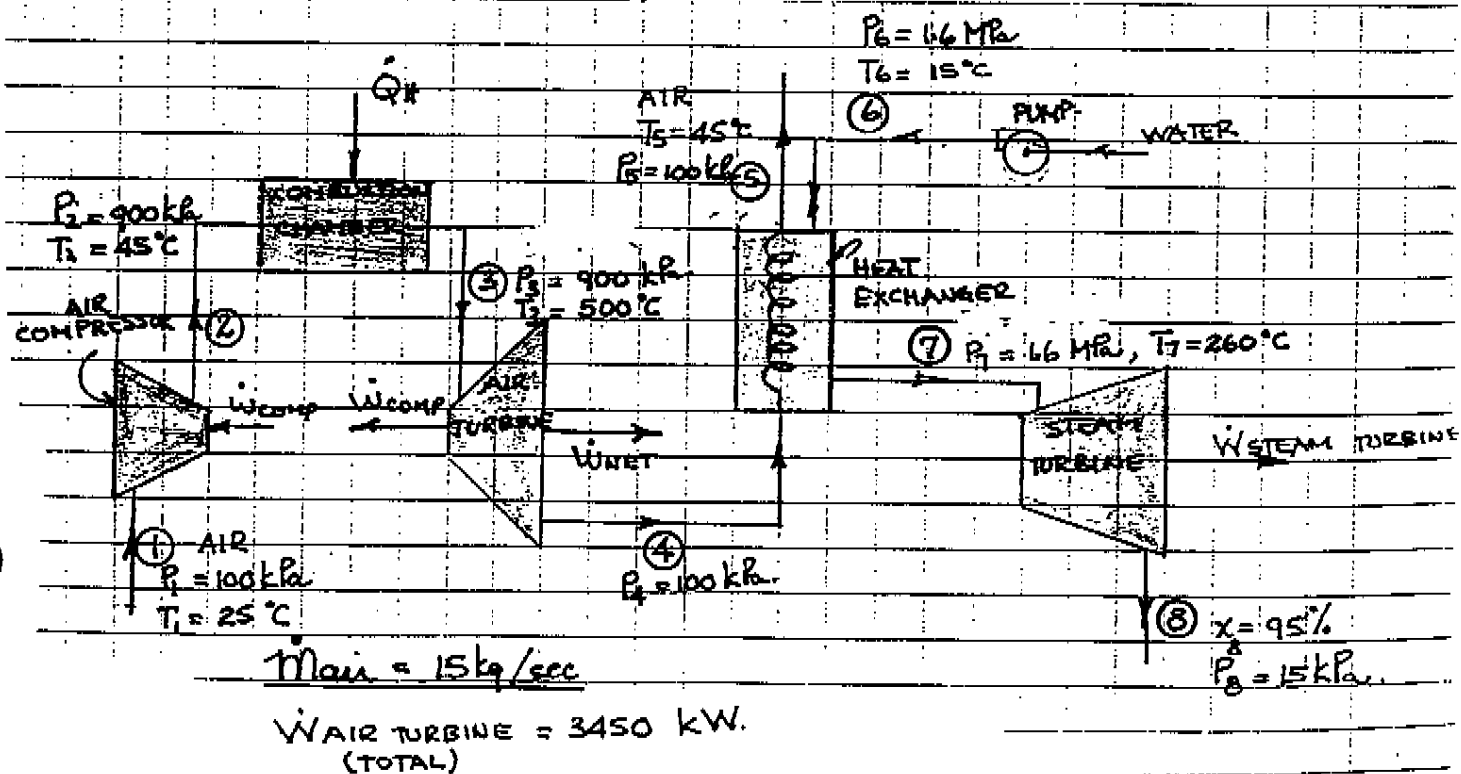 P6 = 1.6 MPa
T6 = 15°C
Q̇H
AIR
T5 = 45°C
P5 = 100 kPa ⑤
⑥
PUMP
WATER
P2 = 900 kPa
T2 = 45°C
COMBUSTION
CHAMBER
③ P3 = 900 kPa
T3 = 500°C
HEAT
EXCHANGER
AIR
COMPRESSOR
②
⑦ P7 = 1.6 MPa, T7 = 260°C
ẆCOMP
ẆCOMP
AIR
TURBINE
ẆNET
STEAM
TURBINE
ẆSTEAM TURBINE
① AIR
P1 = 100 kPa
T1 = 25°C
④
P4 = 100 kPa.
⑧ x8 = 95%
P8 = 15 kPa.
ṁair = 15 kg/sec
ẆAIR TURBINE = 3450 kW.
(TOTAL)